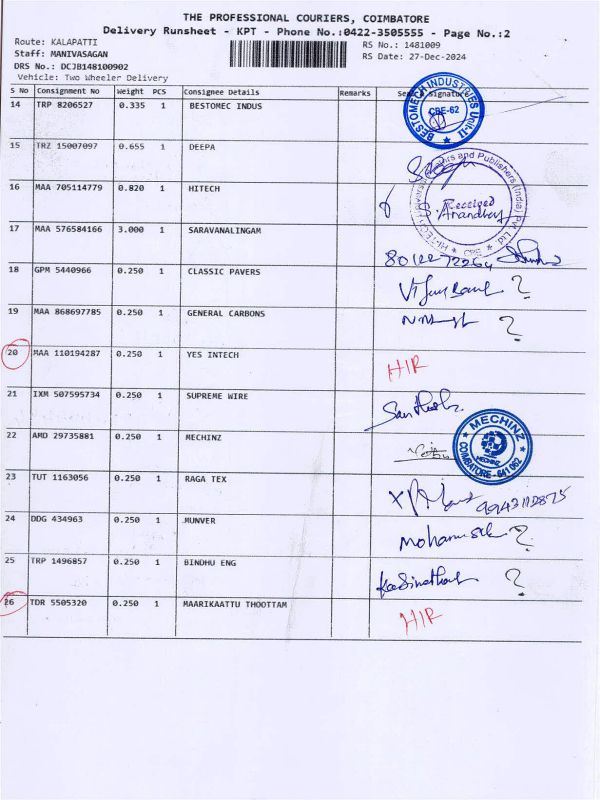 THE PROFESSIONAL COURIERS, COIMBATORE
Delivery Runsheet - KPT - Phone No.:0422-3505555 - Page No.:2
Route: KALAPATTI RS No.: 1481009
Staff: MANIVASAGAN RS Date: 27-Dec-2024
DRS No.: DCJB148100902
Vehicle: Two Wheeler Delivery
S No Consignment No Weight PCS Consignee Details Remarks
14 TRP 8206527 0.335 1 BESTOMEC INDUS
BESTOMECH INDUSTRIES Unit-II
CBE-62
15 TRZ 15007097 0.655 1 DEEPA
16 MAA 705114779 0.820 1 HITECH
and Publishers (India) Pvt. Ltd
Received
CBE
17 MAA 576584166 3.000 1 SARAVANALINGAM
18 GPM 5440966 0.250 1 CLASSIC PAVERS ?
19 MAA 868697785 0.250 1 GENERAL CARBONS ?
20 MAA 110194287 0.250 1 YES INTECH HIR
21 IXM 507595734 0.250 1 SUPREME WIRE
22 AMD 29735881 0.250 1 MECHINZ
MECHINZ
MECHINZ
COIMBATORE - 641 062
23 TUT 1163056 0.250 1 RAGA TEX
24 DDG 434963 0.250 1 MUNVER ?
25 TRP 1496857 0.250 1 BINDHU ENG ?
26 TDR 5505320 0.250 1 MAARIKAATTU THOOTTAM HIR